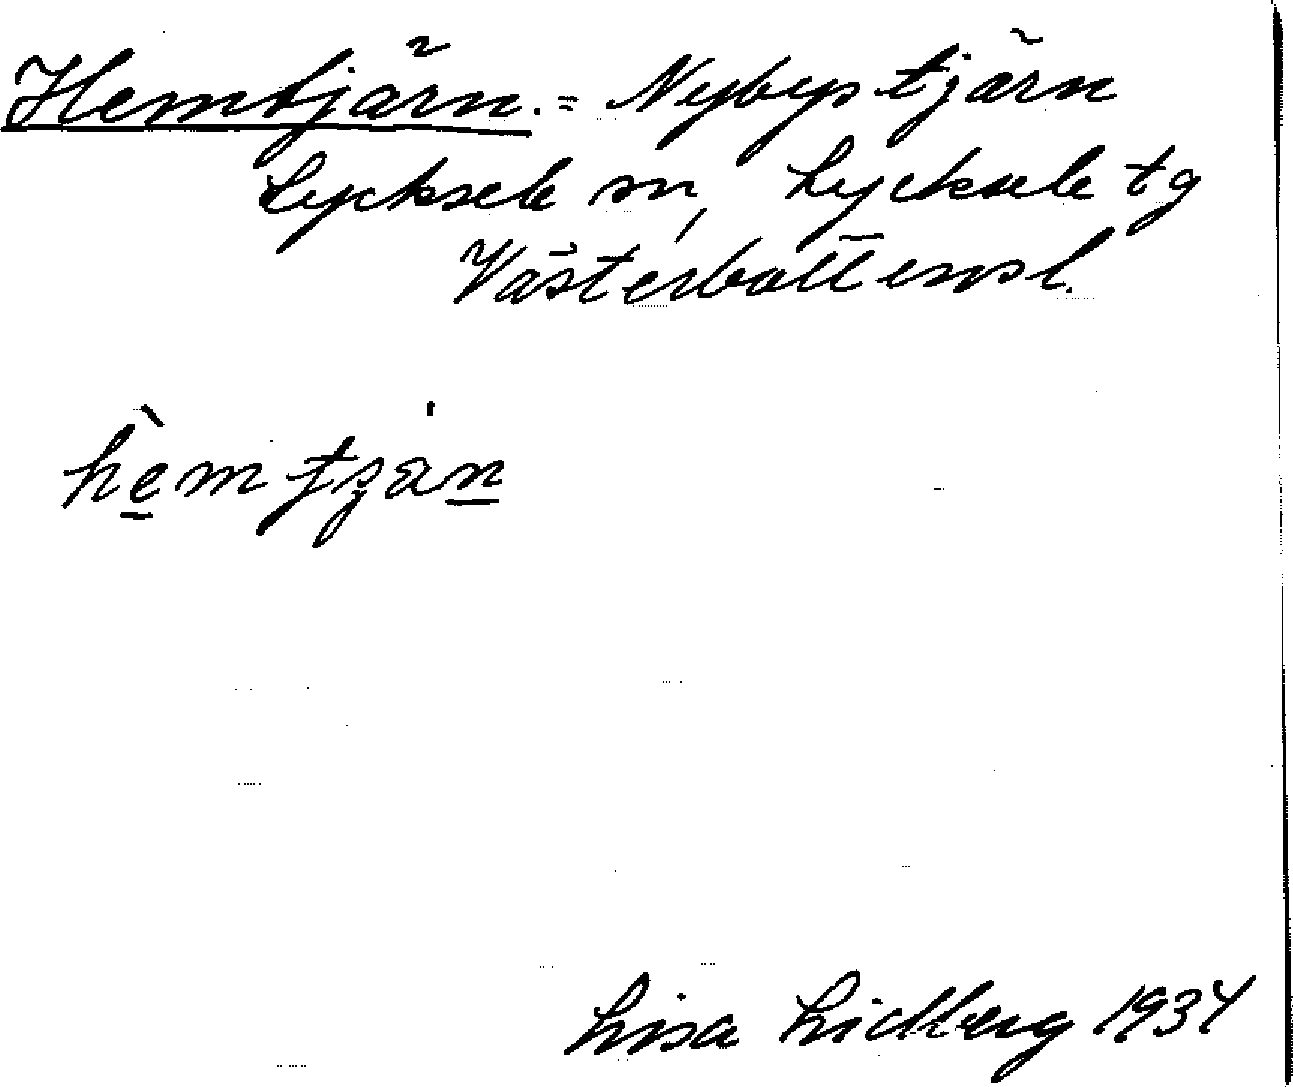 Hemtjärn. = Nybystjärn
Lycksele sn, Lycksele tg
Västerbottensl.
Lisa Lidberg 1934